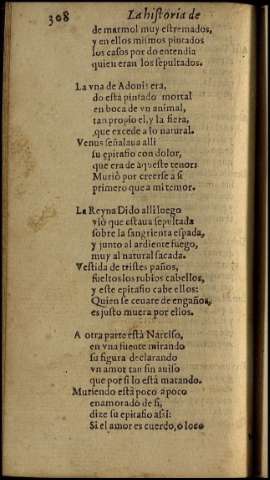 308
La historia de
de marmol muy estremados,
y en ellos mismos pintados
los casos por do entendia
quien eran los sepultados.
La vna de Adonis era,
do està pintado mortal
en boca de vn animal,
tan propio el, y la fiera,
que excede a lo natural.
Venus señalaua alli
su epitafio con dolor,
que era de aqueste tenor:
Muriò por creerse a si
primero que a mi temor.
La Reyna Dido alli luego
viò que estaua sepultada
sobre la sangrienta espada,
y junto al ardiente fuego,
muy al natural sacada.
Vestida de tristes paños,
sueltos los rubios cabellos,
y este epitafio cabe ellos:
Quien se ceuare de engaños,
es justo muera por ellos.
A otra parte està Narciso,
en vna fuente mirando
su figura declarando
vn amor tan sin auiso
que por si lo està matando.
Muriendo està poco a poco
enamorado de si,
dize su epitafio assi:
Si el amor es cuerdo, o loco